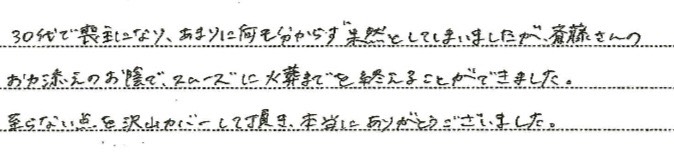 30代で喪主になり、あまりに何も分からず呆然としてしまいましたが、斎藤さんの
お力添えのお陰で、スムーズに火葬までを終えることができました。
至らない点を沢山カバーして頂き、本当にありがとうございました。